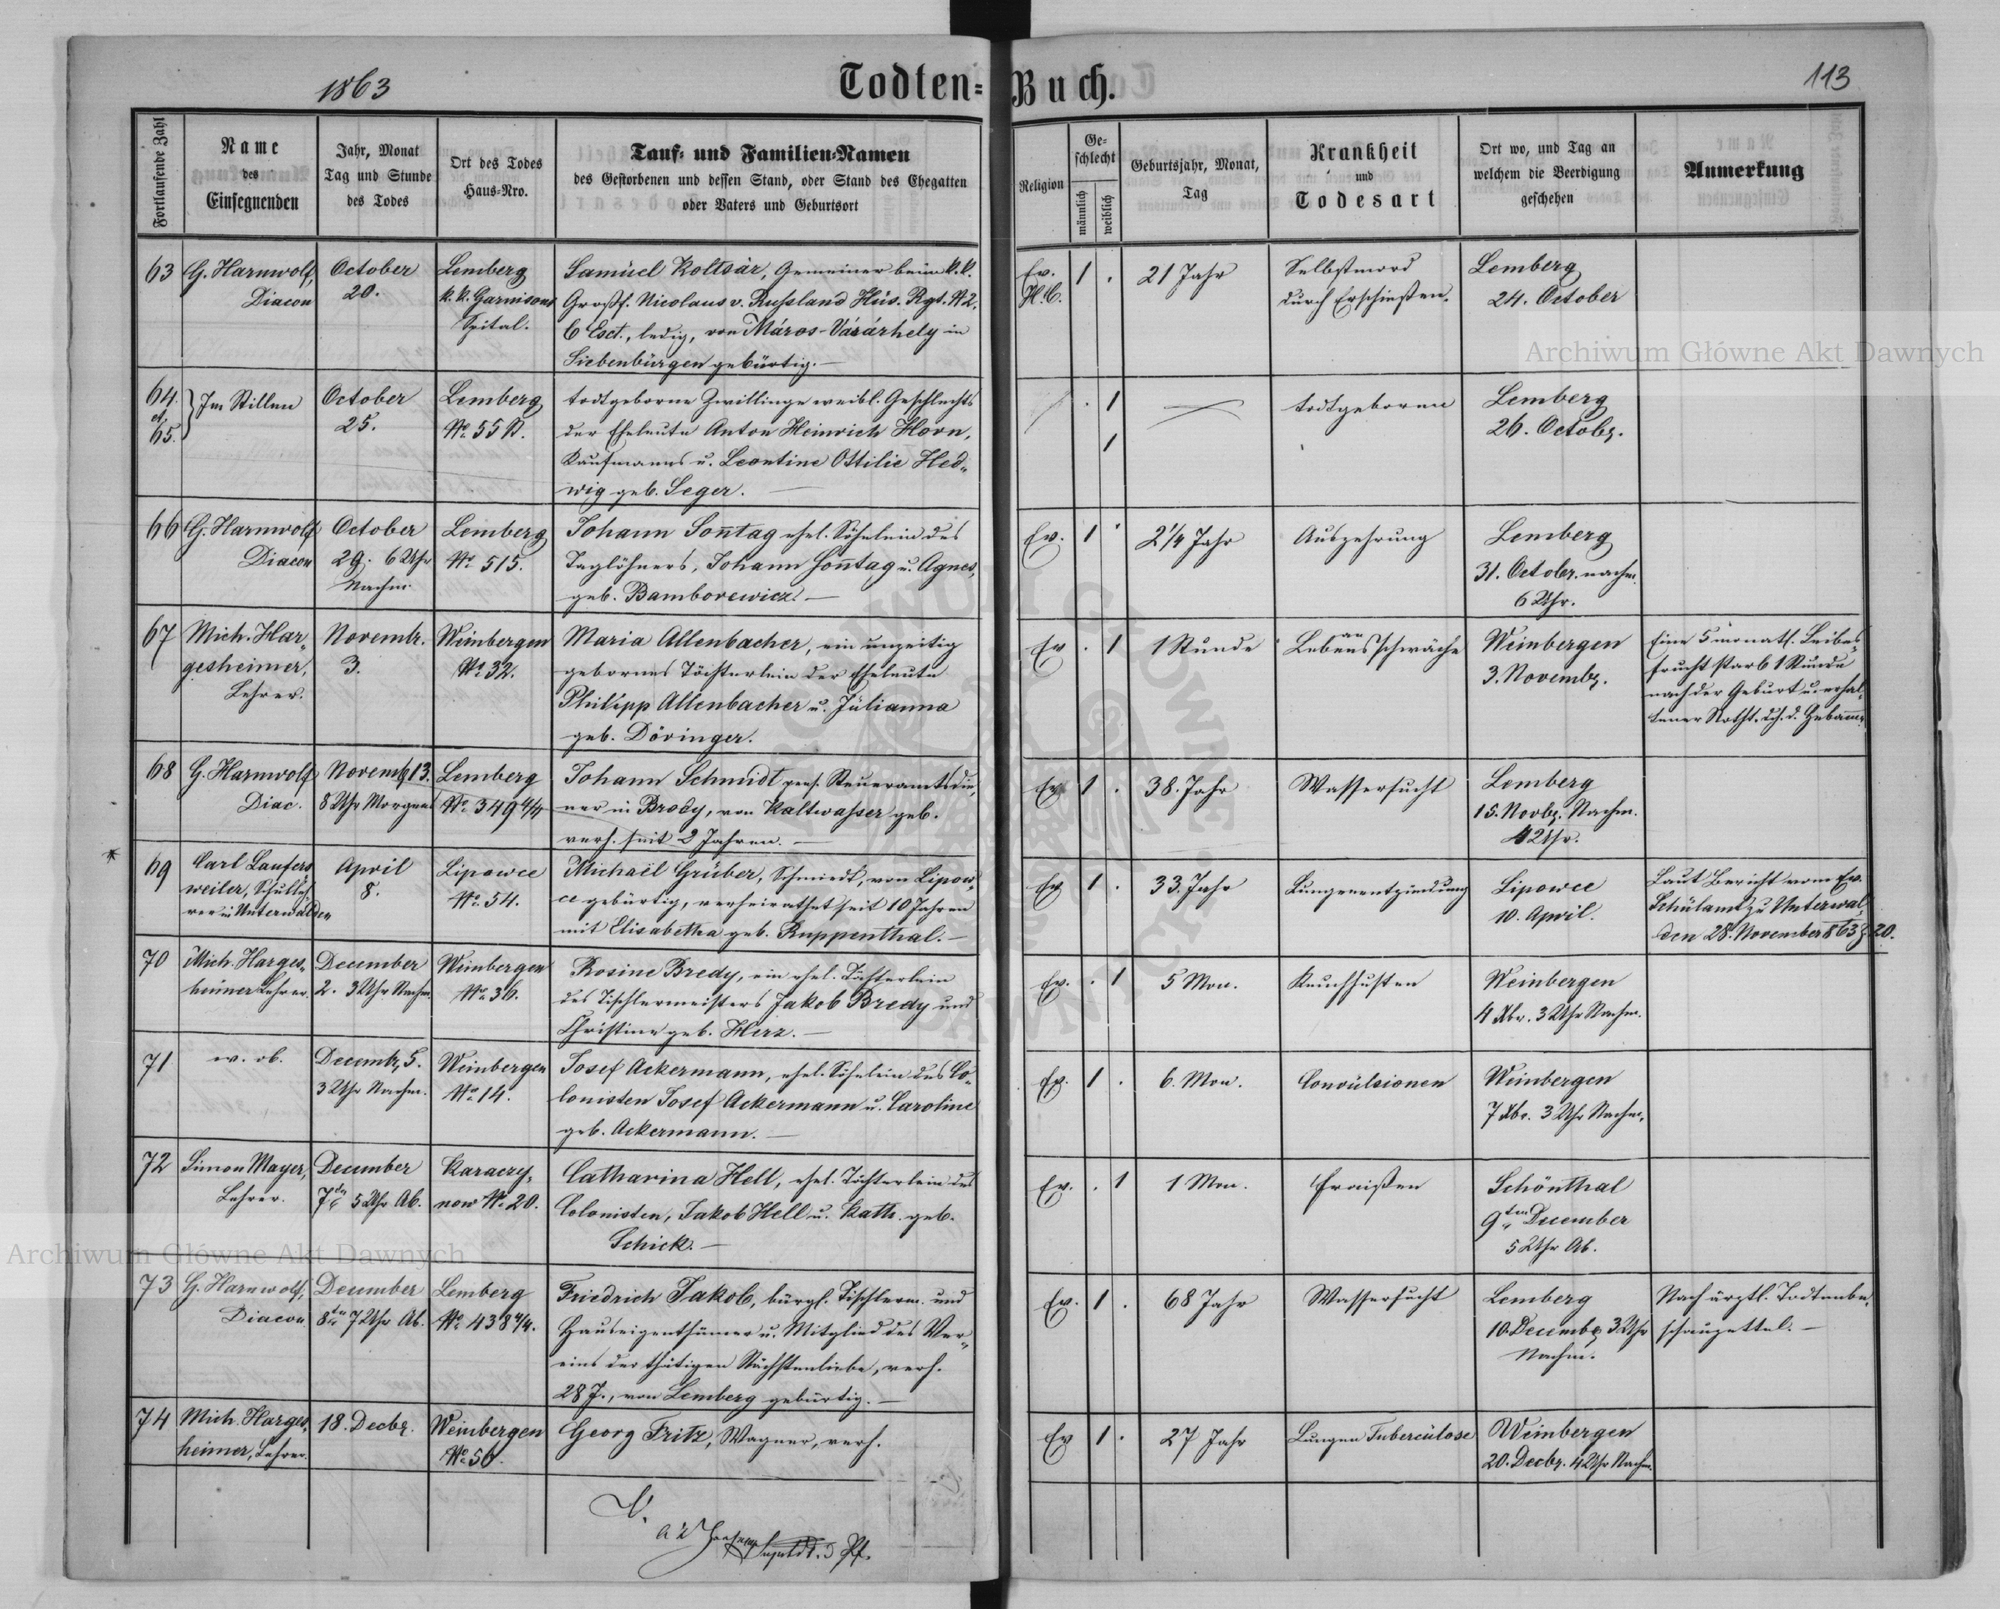 1863
Todten-Buch.
113
Fortlaufende Zahl
Name
des
Einsegnenden
Jahr, Monat
Tag und Stunde
des Todes
Ort des Todes
Haus-Nro.
Tauf- und Familien-Namen
des Gestorbenen und dessen Stand, oder Stand des Ehegatten
oder Vaters und Geburtsort
Religion
Ge-
schlecht
männlich
weiblich
Geburtsjahr, Monat,
Tag
Krankheit
und
Todesart
Ort wo, und Tag an
welchem die Beerdigung
geschehen
Anmerkung
63
G. Harnwolf,
Diacon
October
20.
Lemberg
k.k. Garnisons
Spital.
Samuel Koltsár, Gemeiner beim k.k.
Großf. Nicolaus v. Russland Hus. Rgt. N 2.
6 Esct., ledig, von Máros-Vásárhely in
Siebenbürgen gebürtig. —
Ev.
H.C.
1 .
21 Jahr
Selbstmord
durch Erschießen.
Lemberg
24. October
64.
et
65.
Im Stillen
October
25.
Lemberg
No 55
todtgeborne Zwillinge weibl. Geschlechts
der Eheleute Anton Heinrich Horn,
Kaufmanns u. Leontine Ottilie Hed-
wig geb. Seger. —
. 1
1
todtgeboren
Lemberg
26. Octobr.
66
G. Harnwolf
Diacon
October
29. 6 Uhr
Nachm.
Lemberg
No 515.
Johann Sonntag ehel. Söhnlein des
Taglöhners, Johann Sonntag u. Agnes,
geb. Bamborewicz. —
Ev.
1 .
2 1/4 Jahr
Auszehrung
Lemberg
31. October. nachm.
6 Uhr.
67
Mich. Har-
gesheimer,
Lehrer.
Novembr.
3.
Weinbergen
No 32.
Maria Allenbacher, ein unzeitig
gebornes Töchterlein der Eheleute
Philipp Allenbacher u. Julianna
geb. Döringer.
Ev
. 1
1 Stunde
Lebensschwäche
Weinbergen
3. Novembr.
Eine 5 monatl. Leibes-
frucht starb 1 Stunde
nach der Geburt u. erhal-
tener Notht. dch. d. Hebamme
68
G. Harnwolf
Diac.
Novemb. 13.
8 Uhr Morgens
Lemberg
No 349 4/4
Johann Schmidt pens. Steueramtsdie-
ner in Brody, von Kaltwasser geb.
verh. seit 2 Jahren. —
Ev
1 .
38. Jahr
Wassersucht
Lemberg
15. Novbr. Nachm.
4 Uhr.
69
Carl Laufers-
weiler, Schulleh-
rer in Unterwalden
April
8.
Lipowce
No 54.
Michaël Gruber, Schmiedt, von Lipow-
ce gebürtig, verheirathet seit 10 Jahren
mit Elisabetha geb. Ruppenthal. —
Ev
1 .
33. Jahr
Lungenentzündung
Lipowce
10. April.
Laut Bericht vom Ev.
Schulamt zu Unterwal-
den 28. November 863 Z. 20.
70
Mich. Harges-
heimer Lehrer.
December
2. 3 Uhr Nachm.
Weinbergen
No 36.
Rosine Bredy, ein ehel. Töchterlein
des Tischlermeisters Jakob Bredy und
Christine geb. Herz. —
Ev.
. 1
5 Mon.
Keuchhusten
Weinbergen
4 Xbr. 3 Uhr Nachm.
71
w. ob.
Decembr, 5.
3 Uhr Nachm.
Weinbergen
No 14.
Josef Ackermann, ehel. Söhnlein des Co-
lonisten Josef Ackermann u. Caroline
geb. Ackermann. —
Ev.
1 .
6. Mon.
Convulsionen
Weinbergen
7 Xbr. 3 Uhr Nachm.
72
Simon Mayer,
Lehrer.
December
7 5 Uhr Ab.
Karaczy-
now No 20.
Catharina Hell, ehel. Töchterlein des
Colonisten, Jakob Hell u. Kath. geb.
Schick. —
Ev.
. 1
1 Mon.
Fraißen
Schönthal
9ten December
5 Uhr Ab.
73
G. Harnwolf,
Diacon
December
8ten 7 Uhr Ab.
Lemberg
No 438 4/4.
Friedrich Jakob, bürgl. Tischlerm. und
Hauseigenthümer u. Mitglied des Ver-
eins der thätigen Nächstenliebe, verh.
28 J., von Lemberg gebürtig. —
Ev.
1 .
68 Jahr
Wassersucht
Lemberg
10 Decembr 3 Uhr
Nachm.
Nach ärztl. Todtenbe-
schauzettel. —
74
Mich. Harges-
heimer, Lehrer.
18. Decbr.
Weinbergen
No 50.
Georg Fritz, Wagner, verh.
Ev
1 .
27 Jahr
Lungen Tuberculose
Weinbergen
20. Decbr. 4 Uhr Nachm.
V.
Archiwum Główne Akt Dawnych
Archiwum Główne Akt Dawnych